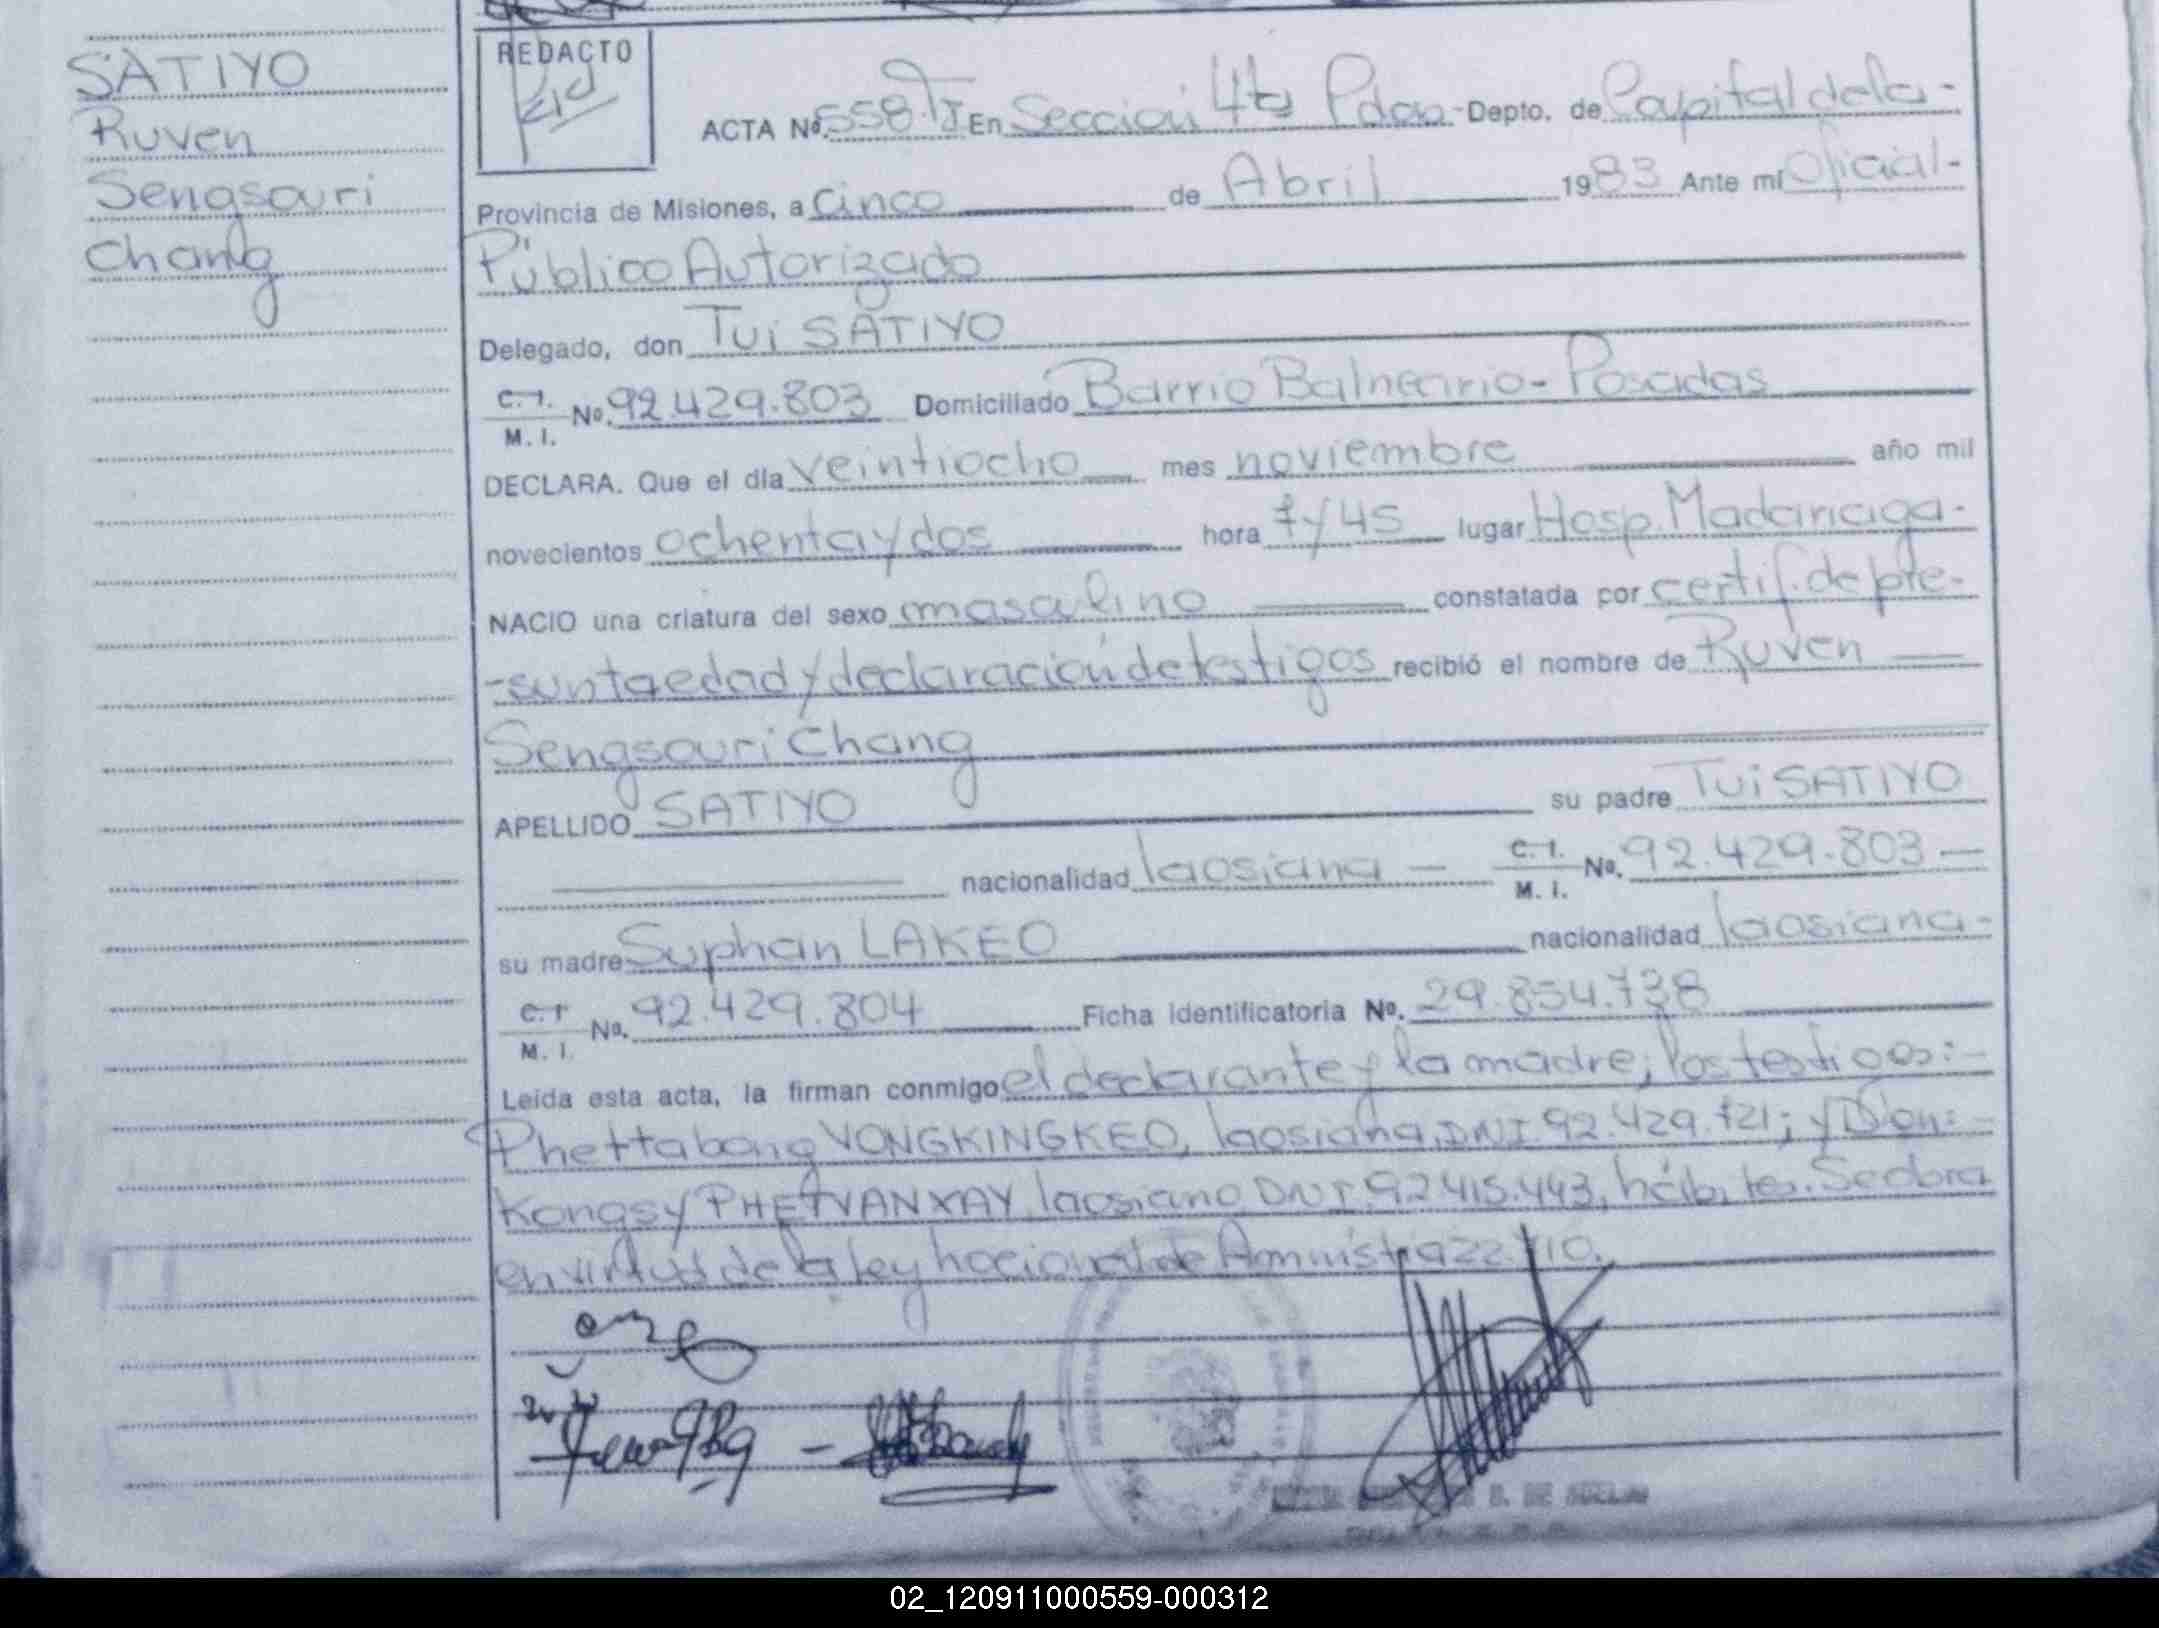 SATIYO
Ruven
Sengsouri
Chang
REDACTO
ACTA Nº 558.TJ En Sección 4ta Pdas- Depto. de Capital de la-
Provincia de Misiones, a cinco de Abril 1983 Ante mí Oficial-
Público Autorizado
Delegado, don Tui SATIYO
C.I.
M. I.
Nº. 92.429.803 Domiciliado Barrio Balneario- Posadas
DECLARA. Que el día veintiocho mes noviembre año mil
novecientos ochenta y dos hora 7 y 45 lugar Hosp. Madariaga-
NACIO una criatura del sexo masculino constatada por certif. de pre-
-sunta edad y declaración de testigos recibió el nombre de Ruven
Sengsouri Chang
APELLIDO SATIYO su padre Tui SATIYO
nacionalidad laosiana - C.I.
M. I.
Nº. 92.429.803
su madre Suphan LAKEO nacionalidad laosiana-
C.I
M. I.
Nº. 92.429.804 Ficha identificatoria Nº. 29.834.738
Leída esta acta, la firman conmigo el declarante y la madre; los testigos:-
Phettabong VONGKINGKEO, laosiana, DNI 92.429.721; y Don:-
Kongsy PHETVANXAY, laosiano DNI 92.415.443, háb. tes. Se obra
en virtud de la ley nacional de Amnistía 22.
02_120911000559-000312